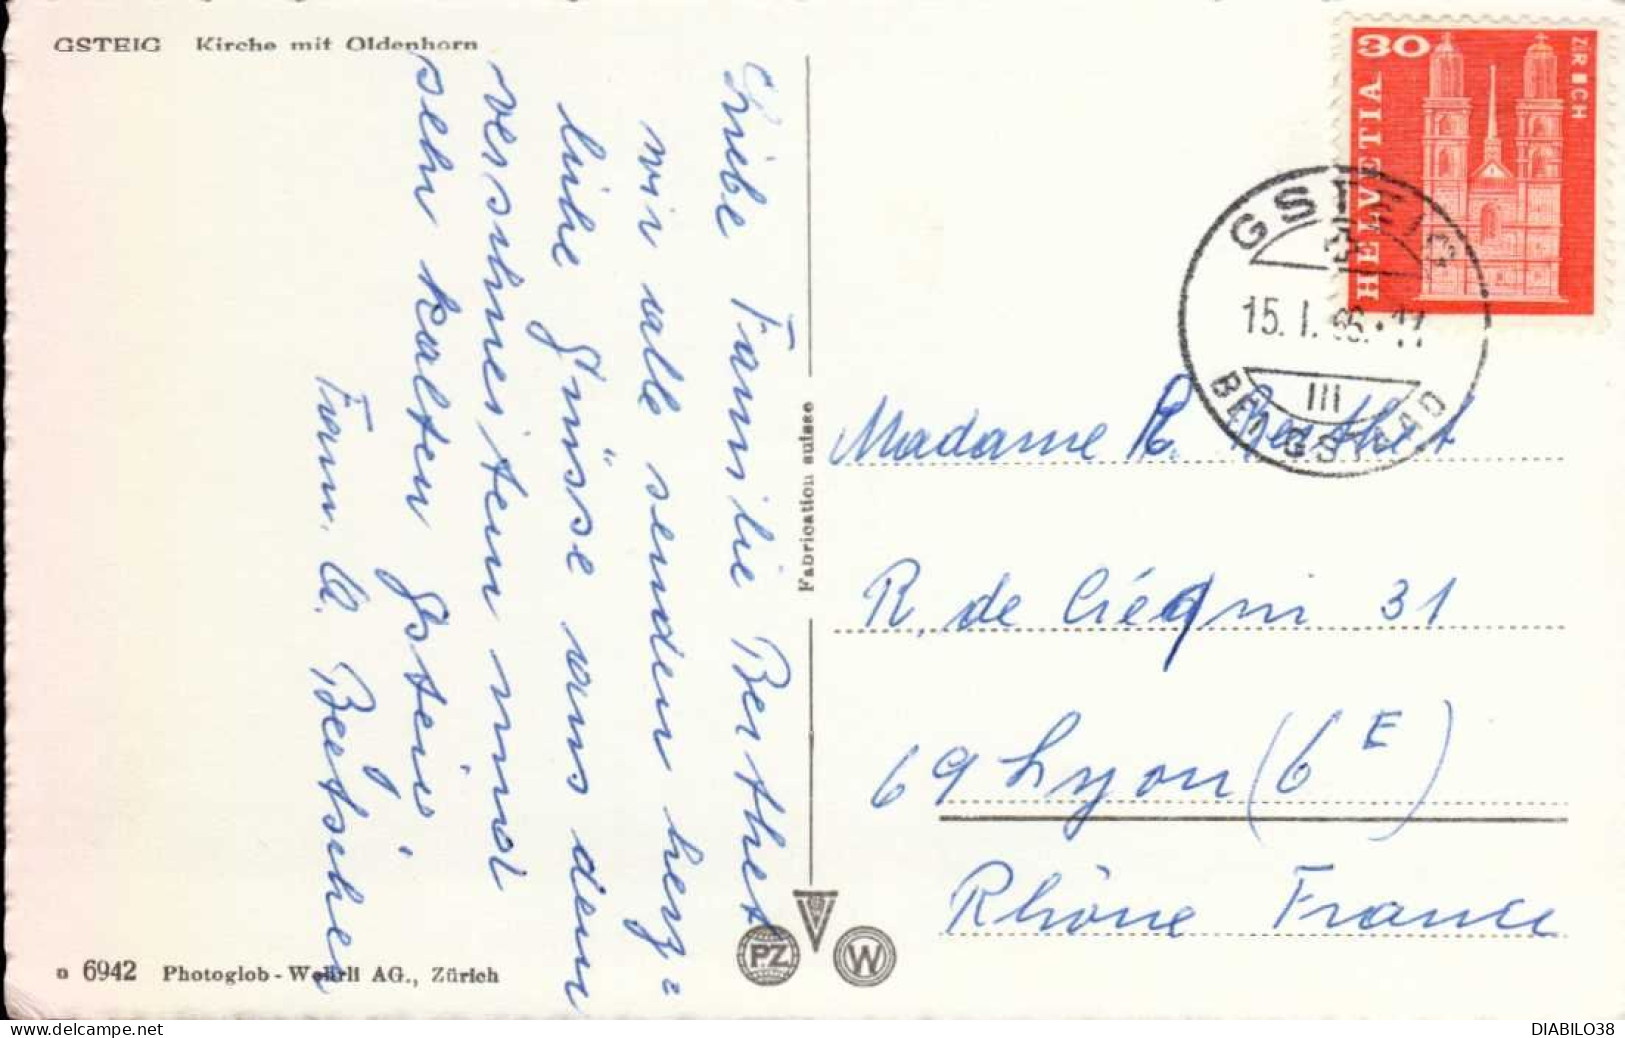 GSTEIG Kirche mit Oldenhorn
Liebe Familie Berthet
wir alle senden herz=
liche Grüsse aus dem
verschneiten und
sehr kalten Gsteig,
Fam. A. Beetschen
Fabrication suisse
6942 Photoglob - Wehrli AG., Zürich
PZ
W
30
HELVETIA
ZÜRICH
GSTEIG
15. I. 66. - 11
III
BEI GSTAAD
Madame R. Berthet
R. de Créqui 31
69 Lyon (6E)
Rhône France
DIABILO38